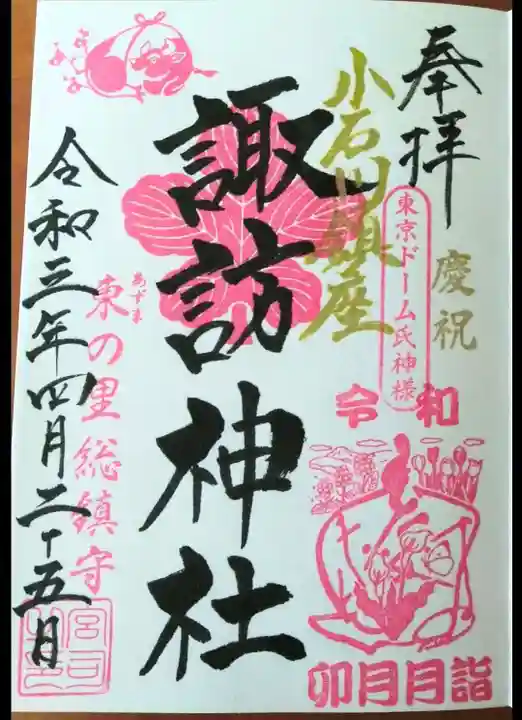 奉拝
慶祝
東京ドーム氏神様
小石川鎮座
令和
卯月月詣
諏訪神社
あずま
東の里総鎮守
令和三年四月二十五日